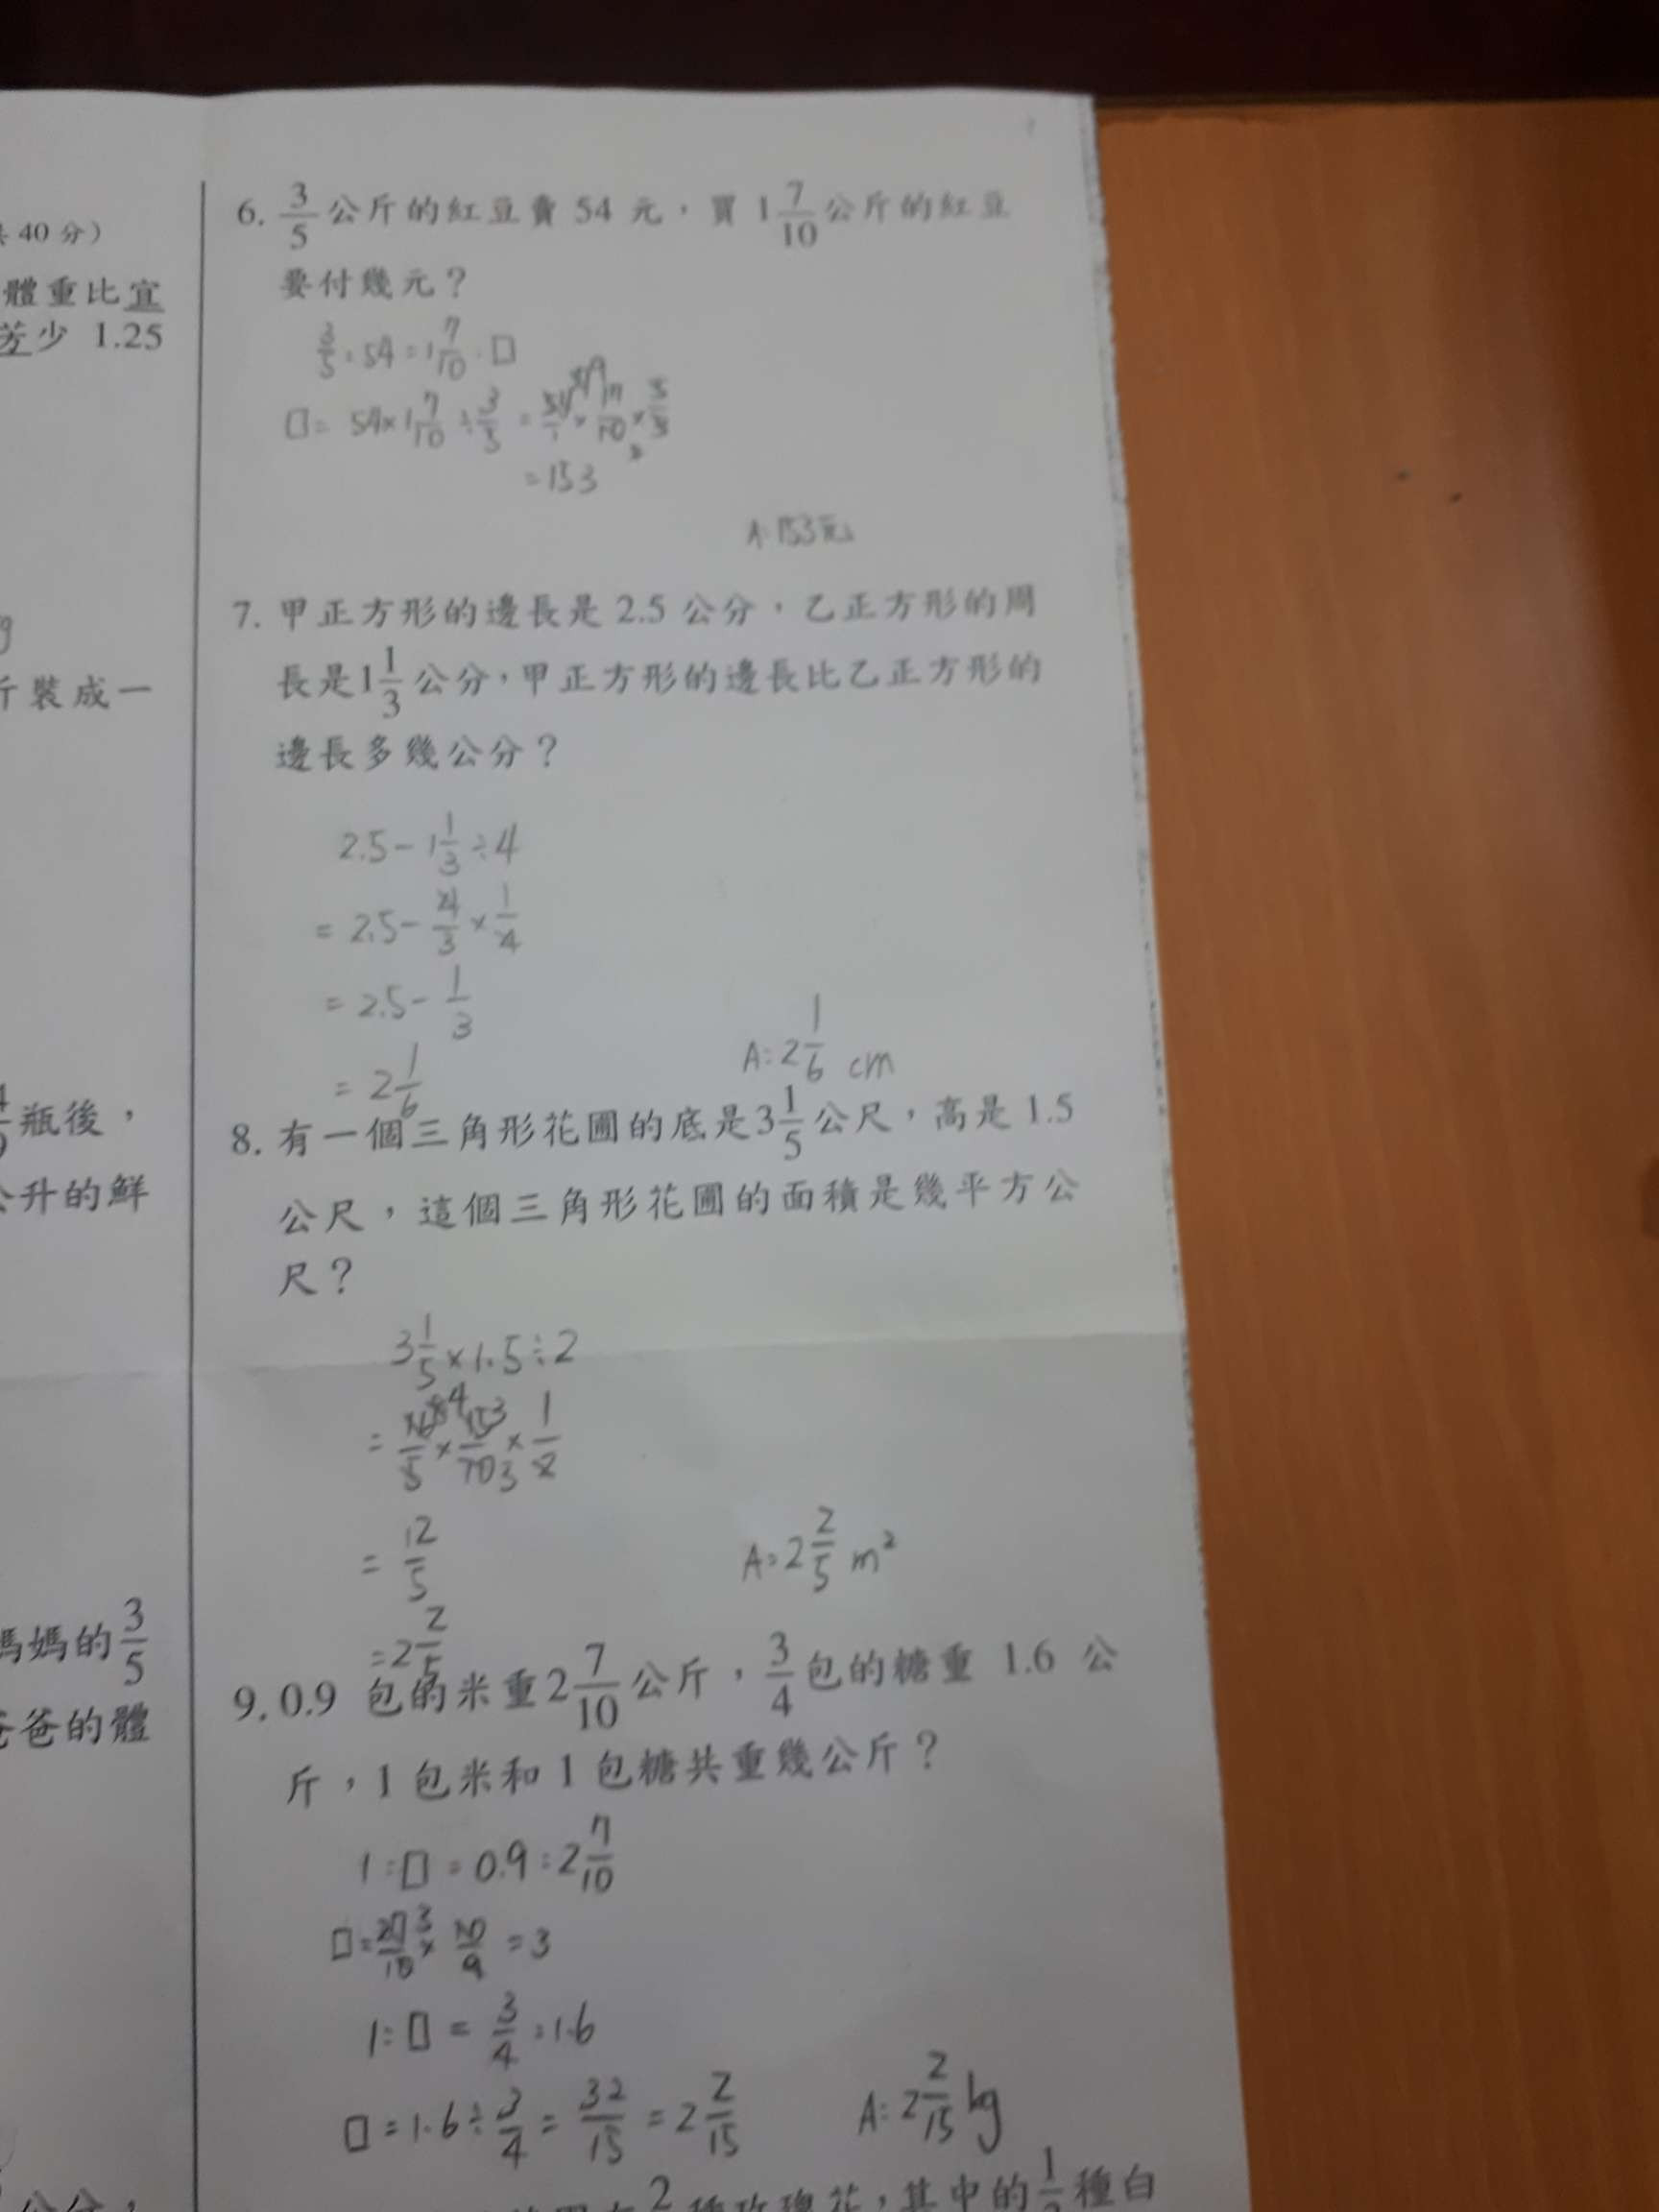 共 40 分）
體重比宜
差少 1.25
斤裝成一
瓶後，
公升的鮮
媽媽的 3/5
爸爸的體
6. 3/5 公斤的紅豆賣 54 元，買 1 7/10 公斤的紅豆
要付幾元？
3/5 : 54 = 1 7/10 : □
□ = 54 × 1 7/10 ÷ 3/5 = 54/1 × 17/10 × 5/3
= 153
A: 153元
7. 甲正方形的邊長是 2.5 公分，乙正方形的周
長是 1 1/3 公分，甲正方形的邊長比乙正方形的
邊長多幾公分？
2.5 - 1 1/3 ÷ 4
= 2.5 - 4/3 × 1/4
= 2.5 - 1/3
= 2 1/6
A: 2 1/6 cm
8. 有一個三角形花圃的底是 3 1/5 公尺，高是 1.5
公尺，這個三角形花圃的面積是幾平方公
尺？
3 1/5 × 1.5 ÷ 2
= 16/5 × 15/10 × 1/2
= 12/5
= 2 2/5
A: 2 2/5 m²
9. 0.9 包的米重 2 7/10 公斤，3/4 包的糖重 1.6 公
斤，1 包米和 1 包糖共重幾公斤？
1 : □ = 0.9 : 2 7/10
□ = 27/10 × 10/9 = 3
1 : □ = 3/4 : 1.6
□ = 1.6 ÷ 3/4 = 32/15 = 2 2/15
A: 2 2/15 kg
種玫瑰花，其中的 種白